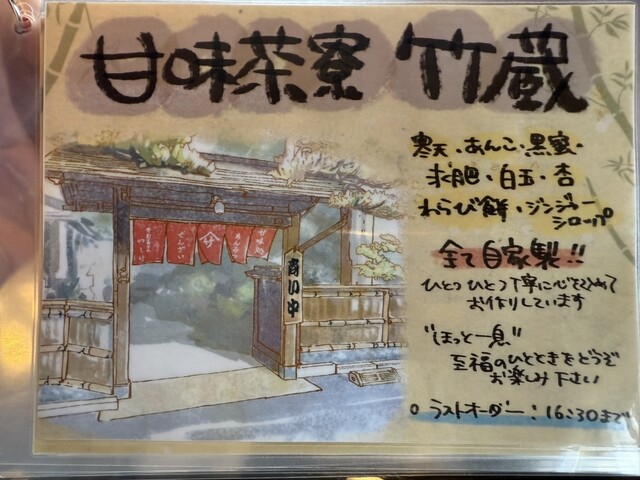 甘味茶寮 竹蔵
寒天・あんこ・黒蜜・
求肥・白玉・杏
わらび餅・ジンジャー
シロップ
全て自家製!!
ひとつひとつ丁寧に心を込めて
お作りしています
"ほっと一息"
至福のひとときをどうぞ
お楽しみ下さい
○ ラストオーダー:16:30まで
甘味処
あんみつ
ぜんざい
商い中